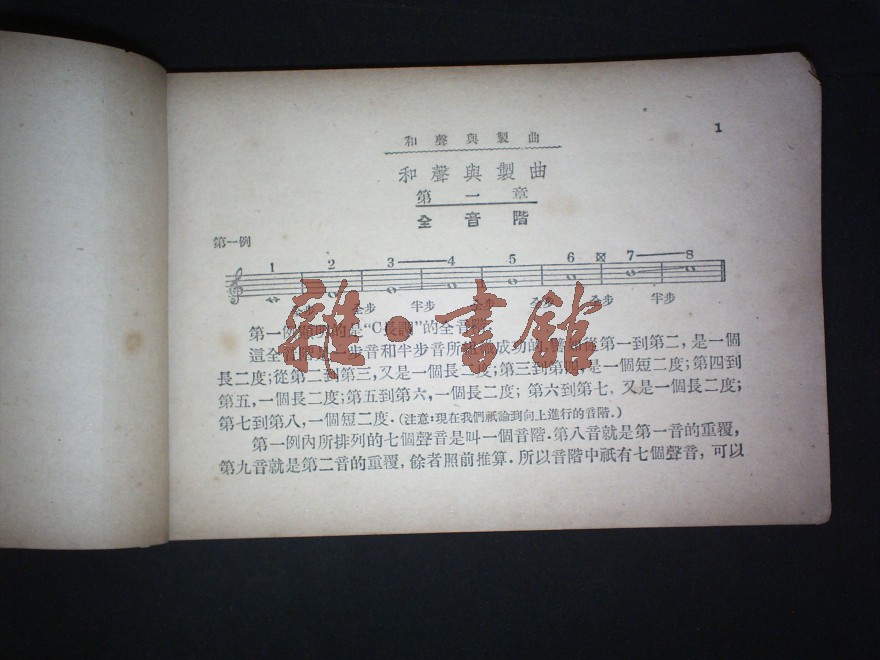 1
和聲與製曲
和聲與製曲
第一章
全音階
第一例
1 2 3 4 5 6 7 8
全步 全步 半步 全步 全步 全步 半步
第一例 的是“C長調”的全音階
這全音階是 步音和半步音所 成功的, 從第一到第二,是一個
長二度;從第二到第三,又是一個長二度;第三到第四,是一個短二度;第四到
第五,一個長二度;第五到第六,一個長二度;第六到第七,又是一個長二度;
第七到第八,一個短二度.(注意:現在我們祇論到向上進行的音階.)
第一例內所排列的七個聲音是叫一個音階.第八音就是第一音的重覆,
第九音就是第二音的重覆,餘者照前推算.所以音階中祇有七個聲音,可以
雜·書館